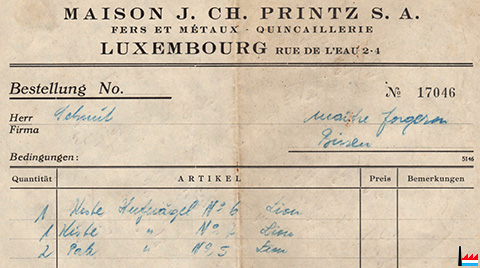 MAISON J. CH. PRINTZ S. A.
FERS ET MÉTAUX - QUINCAILLERIE
LUXEMBOURG RUE DE L'EAU 2-4
Bestellung No. № 17046
Herr Schmit maître forgeron
Firma Bissen
Bedingungen: 5146
Quantität ARTIKEL Preis Bemerkungen
1 Kiste Hufnägel No 6 Lion
1 Kiste " No 7 Lion
2 Pak " No 5 Lion